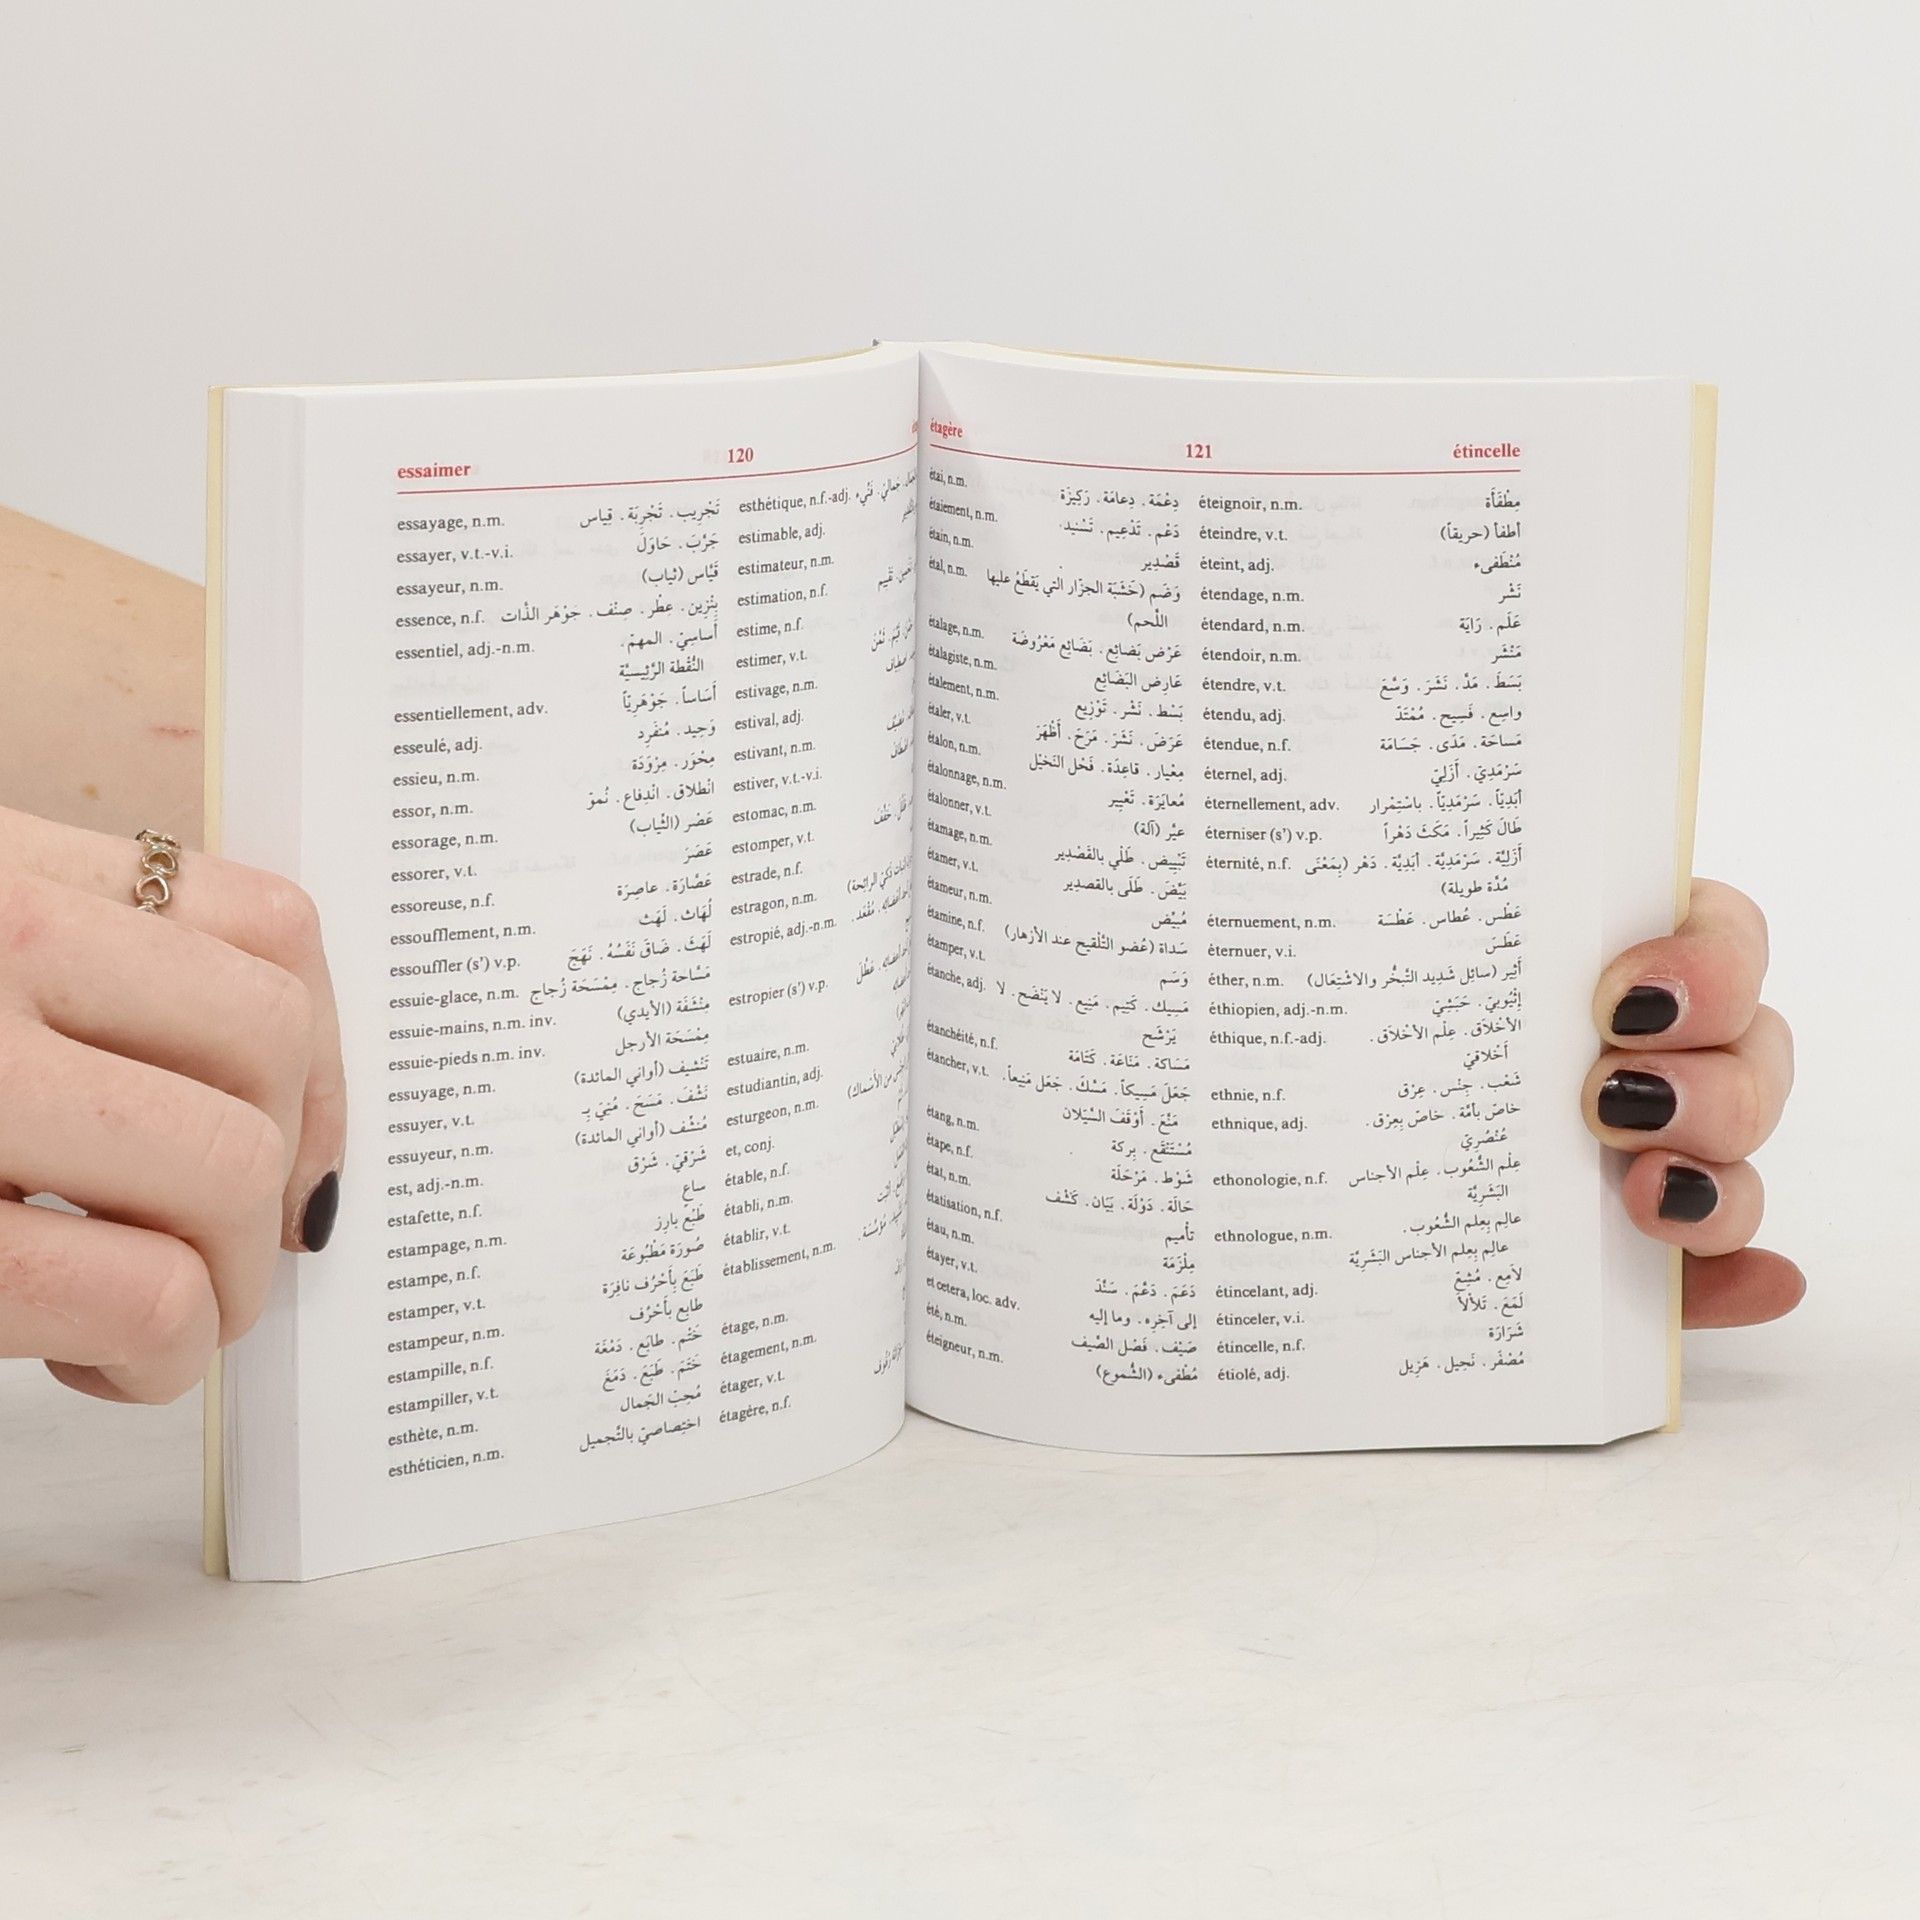 essaimer 120
essayage, n.m. تَجْرِيب . تَجْرِبَة . قِياس
essayer, v.t.-v.i. جَرَّبَ . حَاوَلَ
essayeur, n.m. قَيَّاس (ثياب)
essence, n.f. بِنْزِين . عِطْر . صِنْف . جَوْهَر الذَّات
essentiel, adj.-n.m. أساسِيّ . المهمّ .
النُّقْطة الرَّئِيسيَّة
essentiellement, adv. أَسَاساً . جَوْهَرِيّاً
esseulé, adj. وَحِيد . مُنْفَرِد
essieu, n.m. مِحْوَر . مِرْوَدَة
essor, n.m. انْطلاق . انْدِفاع . نُموّ
essorage, n.m. عَصْر (الثِّياب)
essorer, v.t. عَصَرَ
essoreuse, n.f. عَصَّارَة . عاصِرَة
essoufflement, n.m. لُهَاث . لَهَث
essouffler (s') v.p. لَهَثَ . ضَاقَ نَفَسُهُ . نَهَجَ
essuie-glace, n.m. مَسَّاحة زُجاج . مِمْسَحَة زُجاج
essuie-mains, n.m. inv. مِنْشَفَة (الأيدي)
essuie-pieds n.m. inv. مِمْسَحَة الأرجل
essuyage, n.m. تَنْشيف (أواني المائدة)
essuyer, v.t. نَشَّفَ . مَسَحَ . مُنِيَ بِـ
essuyeur, n.m. مُنشِّف (أواني المائدة)
est, adj.-n.m. شَرْقيّ . شَرْق
estafette, n.f. ساعٍ
estampage, n.m. طَبْع بارِز
estampe, n.f. صُورَة مَطْبُوعَة
estamper, v.t. طَبَعَ بِأَحْرُف نافِرَة
estampeur, n.m. طابِع بأَحْرُف
estampille, n.f. خَتْم . طابَع . دَمْغَة
estampiller, v.t. خَتَمَ . طَبَعَ . دَمَغَ
esthète, n.m. مُحِبّ الجَمال
esthéticien, n.m. اختِصاصيّ بالتَّجميل
esthétique, n.f.-adj.
estimable, adj.
estimateur, n.m.
estimation, n.f.
estime, n.f.
estimer, v.t.
estivage, n.m.
estival, adj.
estivant, n.m.
estiver, v.t.-v.i.
estomac, n.m.
estomper, v.t.
estrade, n.f.
estragon, n.m.
estropié, adj.-n.m.
estropier (s') v.p.
estuaire, n.m.
estudiantin, adj.
esturgeon, n.m.
et, conj.
étable, n.f.
établi, n.m.
établir, v.t.
établissement, n.m.
étage, n.m.
étagement, n.m.
étager, v.t.
étagère, n.f.
étagère 121 étincelle
étai, n.m. دِعْمَة . دِعامَة . رَكِيزَة
étaiement, n.m. دَعْم . تَدْعِيم . تَسْنيد
étain, n.m. قَصْدِير
étal, n.m. وَضَم (خَشَبَة الجزّار التي يَقطَعُ عليها
اللّحم)
étalage, n.m. عَرْض بَضائِع . بَضَائِع مَعْرُوضَة
étalagiste, n.m. عَارِض البَضَائِع
étalement, n.m. بَسْط . نَشْر . تَوْزِيع
étaler, v.t. عَرَضَ . نَشَرَ . مَرَحَ . أَظْهَرَ
étalon, n.m. مِعْيار . قاعِدَة . فَحْل الخَيْل
étalonnage, n.m. مُعايَرَة . تَعْيِير
étalonner, v.t. عيَّر (آلة)
étamage, n.m. تَبْيِيض . طَلْي بالقَصْدِير
étamer, v.t. بَيَّضَ . طَلَى بالقصدِير
étameur, n.m. مُبيِّض
étamine, n.f. سَداة (عُضو التَّلْقيح عند الأزهار)
étamper, v.t. وَسَم
étanche, adj. مَسِيك . كَتِيم . مَنِيع . لا يَنْضَح . لا
يَرْشَح
étanchéité, n.f. مَسَاكة . مَنَاعَة . كَتَامَة
étancher, v.t. جَعَلَ مَسِيكاً . مَسَّكَ . جَعَلَ مَنِيعاً .
مَنَعَ . أَوْقَفَ السَّيَلان
étang, n.m. مُسْتَنْقَع . بِركة
étape, n.f. شَوْط . مَرْحَلَة
état, n.m. حَالَة . دَوْلَة . بَيَان . كَشْف
étatisation, n.f. تأميم
étau, n.m. مِلْزَمَة
étayer, v.t. دَعَمَ . دَعَّمَ . سَنَّدَ
et cetera, loc. adv. إلى آخِرِه . وما إليه
été, n.m. صَيْف . فَصْل الصَّيف
éteigneur, n.m. مُطْفىء (الشُّموع)
éteignoir, n.m. مِطْفَأَة
éteindre, v.t. أطفأ (حريقاً)
éteint, adj. مُنْطَفىء
étendage, n.m. نَشْر
étendard, n.m. عَلَم . رَايَة
étendoir, n.m. مَنْشَر
étendre, v.t. بَسَطَ . مَدَّ . نَشَرَ . وَسَّعَ
étendu, adj. واسِع . فَسِيح . مُمْتَدّ
étendue, n.f. مَساحَة . مَدَى . جَسَامَة
éternel, adj. سَرْمَدِيّ . أَزَلِيّ
éternellement, adv. أبَدِيّاً . سَرْمَدِيّاً . باسْتِمْرار
éterniser (s') v.p. طَالَ كَثِيراً . مَكَثَ دَهْراً
éternité, n.f. أَزَلِيَّة . سَرْمَدِيَّة . أبَدِيَّة . دَهْر (بِمَعْنَى
مُدَّة طويلة)
éternuement, n.m. عَطْس . عُطاس . عَطْسَة
éternuer, v.i. عَطَسَ
éther, n.m. أَثِير (سائِل شَدِيد التَّبخُّر والاشْتِعَال)
éthiopien, adj.-n.m. إثْيُوبيّ . حَبَشِيّ
éthique, n.f.-adj. الأخْلاق . عِلْم الأخْلاق .
أَخْلاقيّ
ethnie, n.f. شَعْب . جِنْس . عِرْق
ethnique, adj. خاصّ بأمَّة . خاصّ بِعِرْق .
عُنْصُرِيّ
ethonologie, n.f. عِلْم الشُّعُوب . عِلْم الأجناس
البَشَرِيَّة
ethnologue, n.m. عالِم بِعِلم الشُّعُوب .
عالِم بِعِلم الأجناس البَشَرِيَّة
étincelant, adj. لاَمِع . مُشِعّ
étinceler, v.i. لَمَعَ . تَلألأ
étincelle, n.f. شَرَارَة
étiolé, adj. مُصْفَر . نَحِيل . هَزِيل